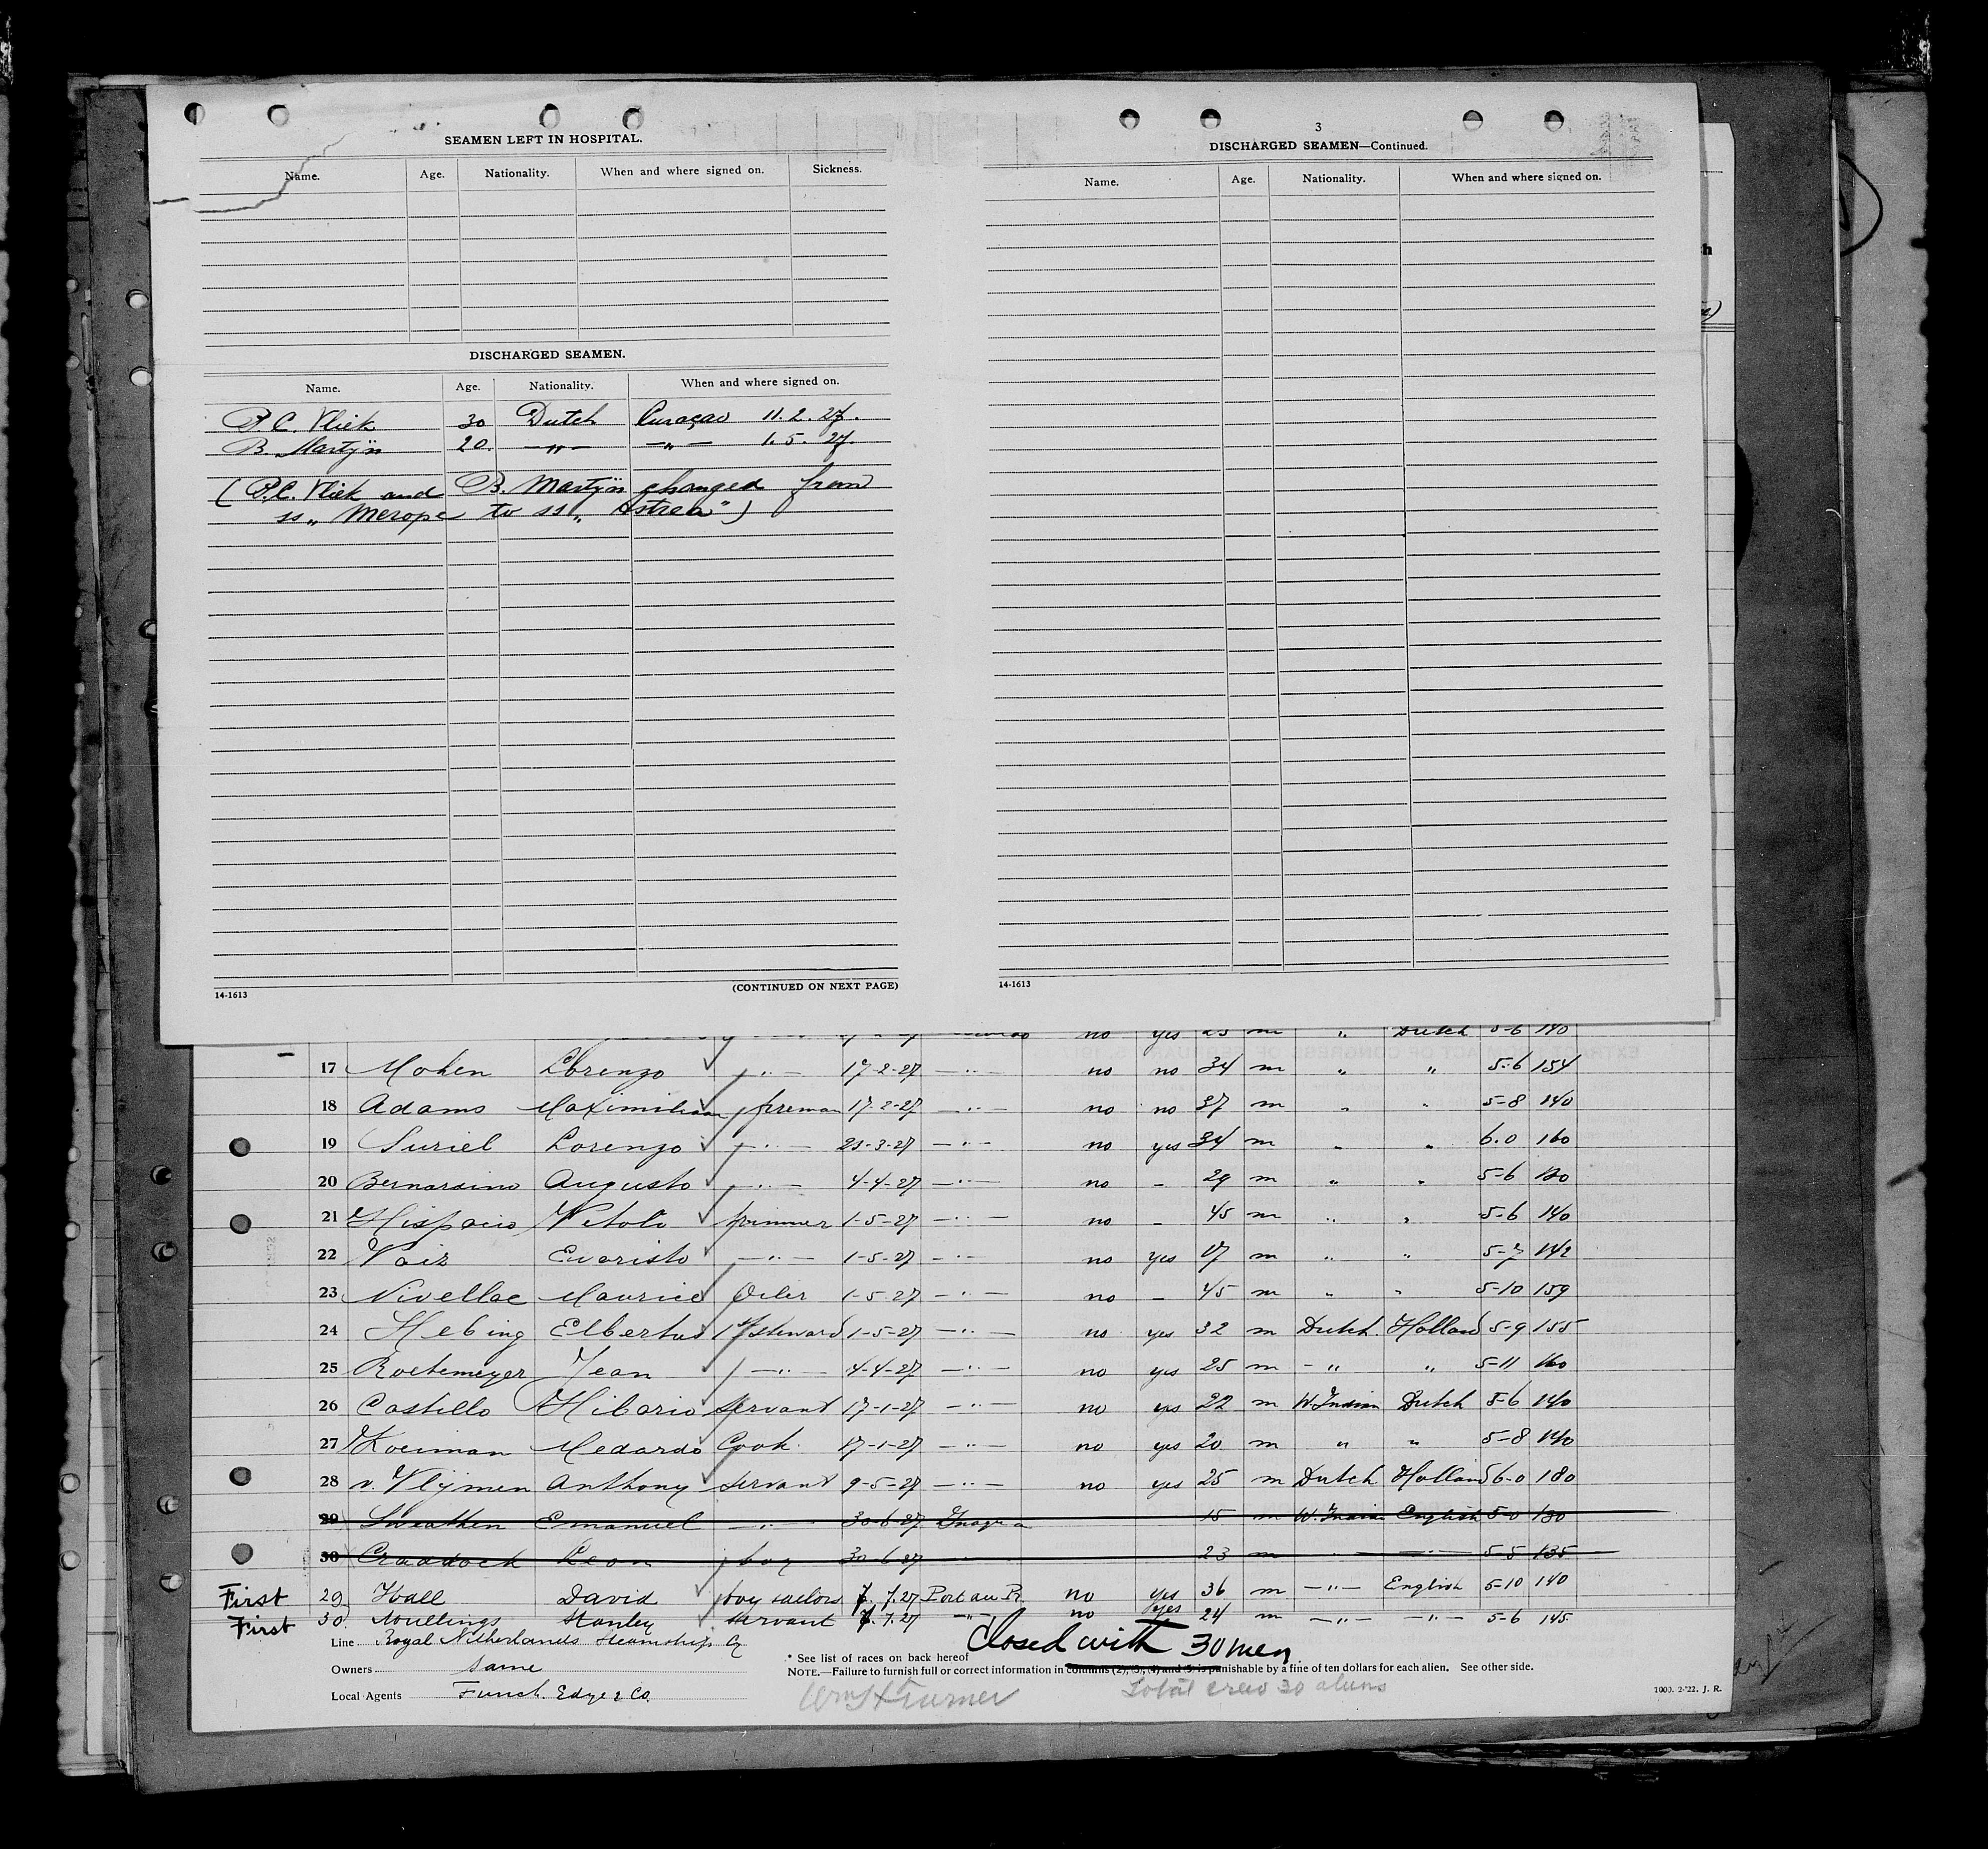 SEAMEN LEFT IN HOSPITAL.
Name. Age. Nationality. When and where signed on. Sickness.
DISCHARGED SEAMEN.
Name. Age. Nationality. When and where signed on.
P.C. Vliek 30 Dutch Curaçao 11. 2. 27.
B. Martÿn 20. —"— —"— 1. 5. 27.
(P.C. Vliek and B. Martÿn changed from
ss „Merope to ss „Astrea")
14-1613 (CONTINUED ON NEXT PAGE)
3
DISCHARGED SEAMEN—Continued.
Name. Age. Nationality. When and where signed on.
14-1613
no yes 23 m " Dutch 5-6 140
17 Mohen Lorenzo —"— 17-2-27 —"— no no 34 m " " 5-6 154
18 Adams Maximiliaan fireman 17-2-27 —"— no no 37 m " " 5-8 140
19 Suriel Lorenzo —"— 21-3-27 —"— no yes 34 m " " 6.0 160
20 Bernardino Augusto —"— 4-4-27 —"— no – 29 m " " 5-6
21 trimmer 1-5-27 —"— no – 45 m " " 5-6 140
22 Evaristo —"— 1-5-27 —"— no yes 17 m " " 5-7 142
23 Nivellac Maurice Oiler 1-5-27 —"— no – 45 m " " 5-10 159
24 Hebing Elbertus 1 steward 1-5-27 —"— no yes 32 m Dutch Holland 5-9 155
25 Roetemeyer Jean —"— 4-4-27 —"— no yes 25 m —"— " 5-11 160
26 Castillo Hilario servant 17-1-27 —"— no yes 22 m W. Indian Dutch 5-6 140
27 Koeiman Medardo Cook 17-1-27 —"— no yes 20 m " " 5-8 140
28 v. Vlijmen Anthony servant 9-5-27 —"— no yes 25 m Dutch Holland 6-0 180
29 Emanuel —"— 30-6-27 Inagua 15 m W. Indian English 5-0 130
30 Craddock Leon boy 30-6-27 —"— 23 m —"— —"— 5-5 135
First 29 Hall David boy sailors 7. 7.27 Port au Pr. no yes 36 m —"— English 5-10 140
First 30. Moullings Stanley servant 7. 7.27 —"— no yes 24 m —"— —"— 5-6 145
Closed with 30 men
Line Royal Netherlands Steamship Cy
Owners same
Local Agents Funch. Edye & Co.
* See list of races on back hereof
NOTE.—Failure to furnish full or correct information in columns (2), (3), (4) and (5) is punishable by a fine of ten dollars for each alien. See other side.
Total crew 30 aliens
1000. 2-'22. J. R.